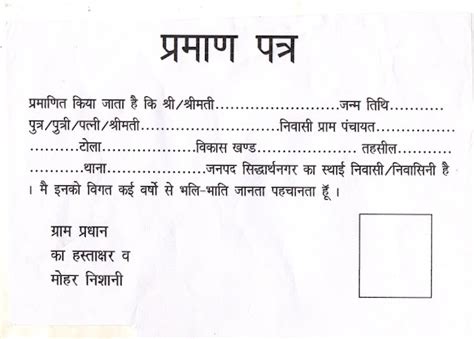 प्रमाण पत्र
प्रमाणित किया जाता है कि श्री/श्रीमती..............................जन्म तिथि...........
पुत्र/पुत्री/पत्नी/श्रीमती...........................निवासी ग्राम पंचायत...............
...........टोला.......................विकास खण्ड................तहसील................
................थाना.......................जनपद सिद्धार्थनगर का स्थाई निवासी/निवासिनी है
। मै इनको विगत कई वर्षो से भलि-भाति जानता पहचानता हूँ ।
ग्राम प्रधान
का हस्ताक्षर व
मोहर निशानी